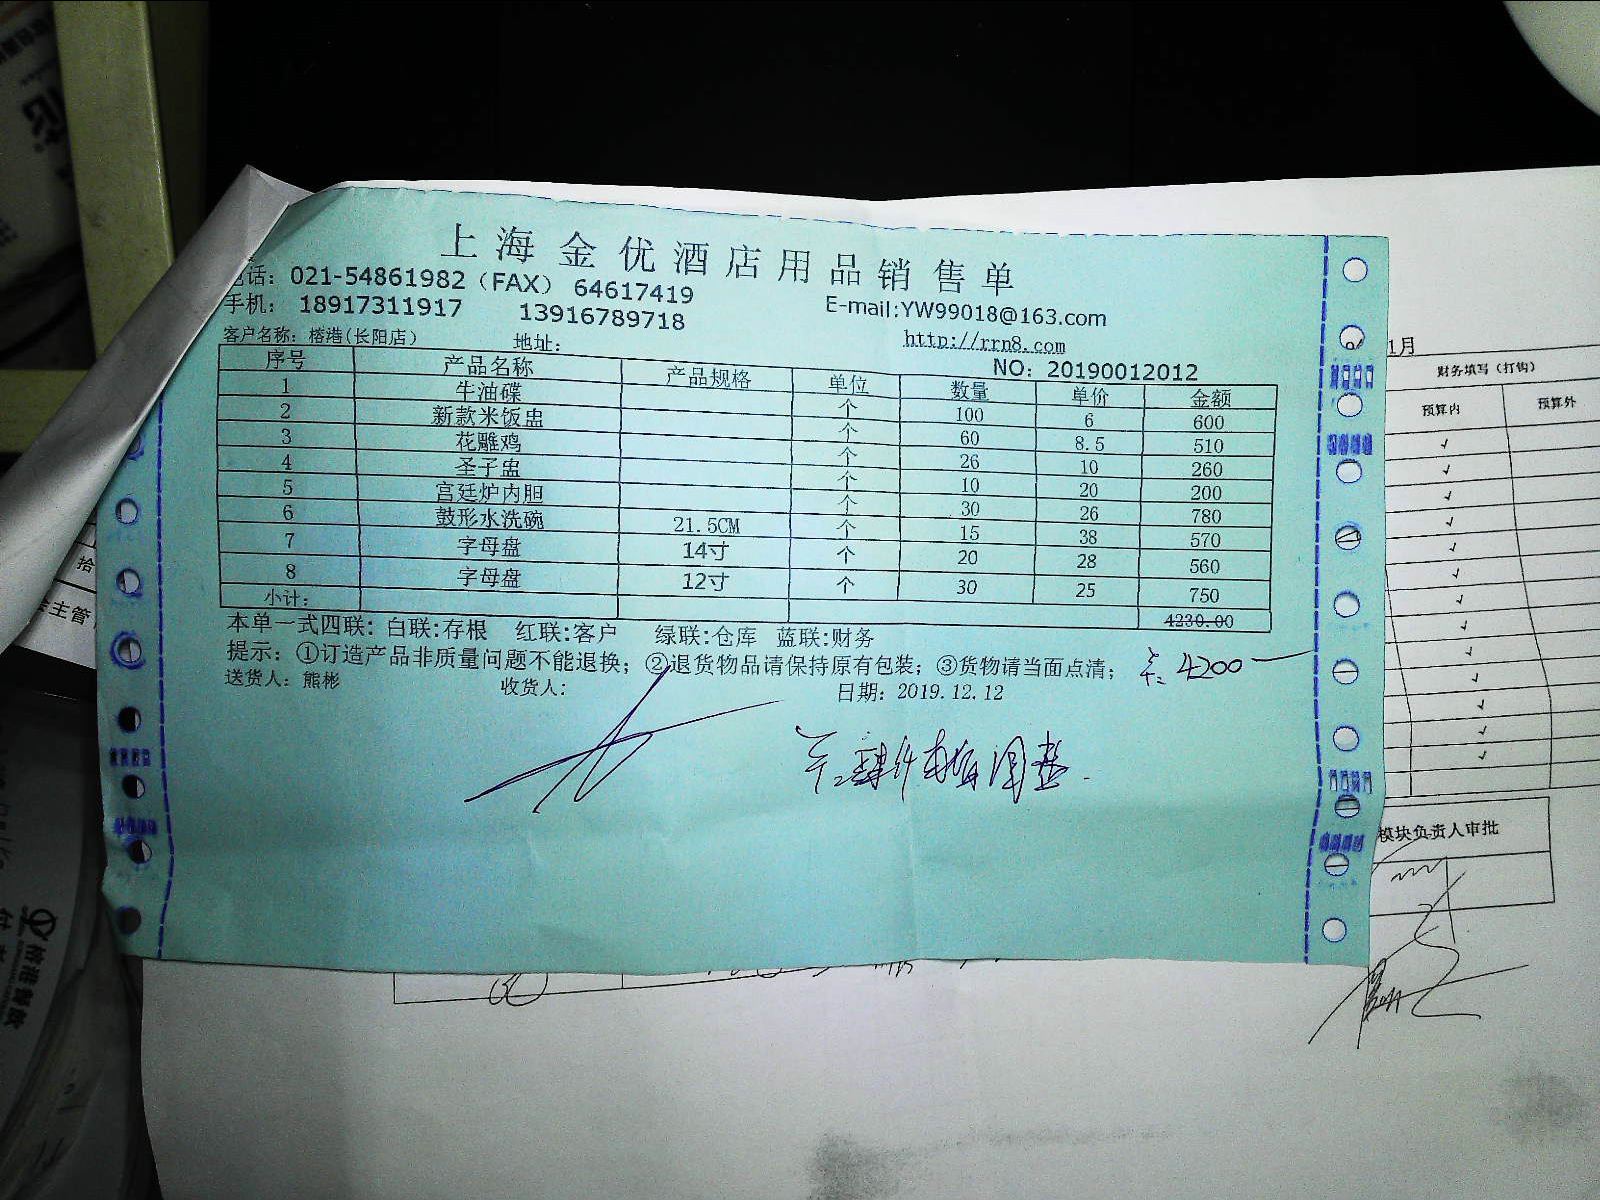 上海金优酒店用品销售单
电话：021-54861982（FAX） 64617419
手机： 18917311917 13916789718 E-mail:YW99018@163.com
客户名称：榕港(长阳店) 地址： http://rrn8.com
NO：20190012012
序号 产品名称 产品规格 单位 数量 单价 金额
1 牛油碟 个 100 6 600
2 新款米饭盅 个 60 8.5 510
3 花雕鸡 个 26 10 260
4 圣子盅 个 10 20 200
5 宫廷炉内胆 个 30 26 780
6 鼓形水洗碗 21.5CM 个 15 38 570
7 字母盘 14寸 个 20 28 560
8 字母盘 12寸 个 30 25 750
小计： 4230.00
本单一式四联：白联:存根 红联:客户 绿联:仓库 蓝联:财务
提示：①订造产品非质量问题不能退换；②退货物品请保持原有包装；③货物请当面点清；
4200
送货人：熊彬 收货人： 日期：2019.12.12
1月
财务填写（打钩）
预算内 预算外
✓
✓
✓
✓
✓
✓
✓
✓
✓
✓
✓
✓
✓
模块负责人审批
拾
主管
榕港餐饮